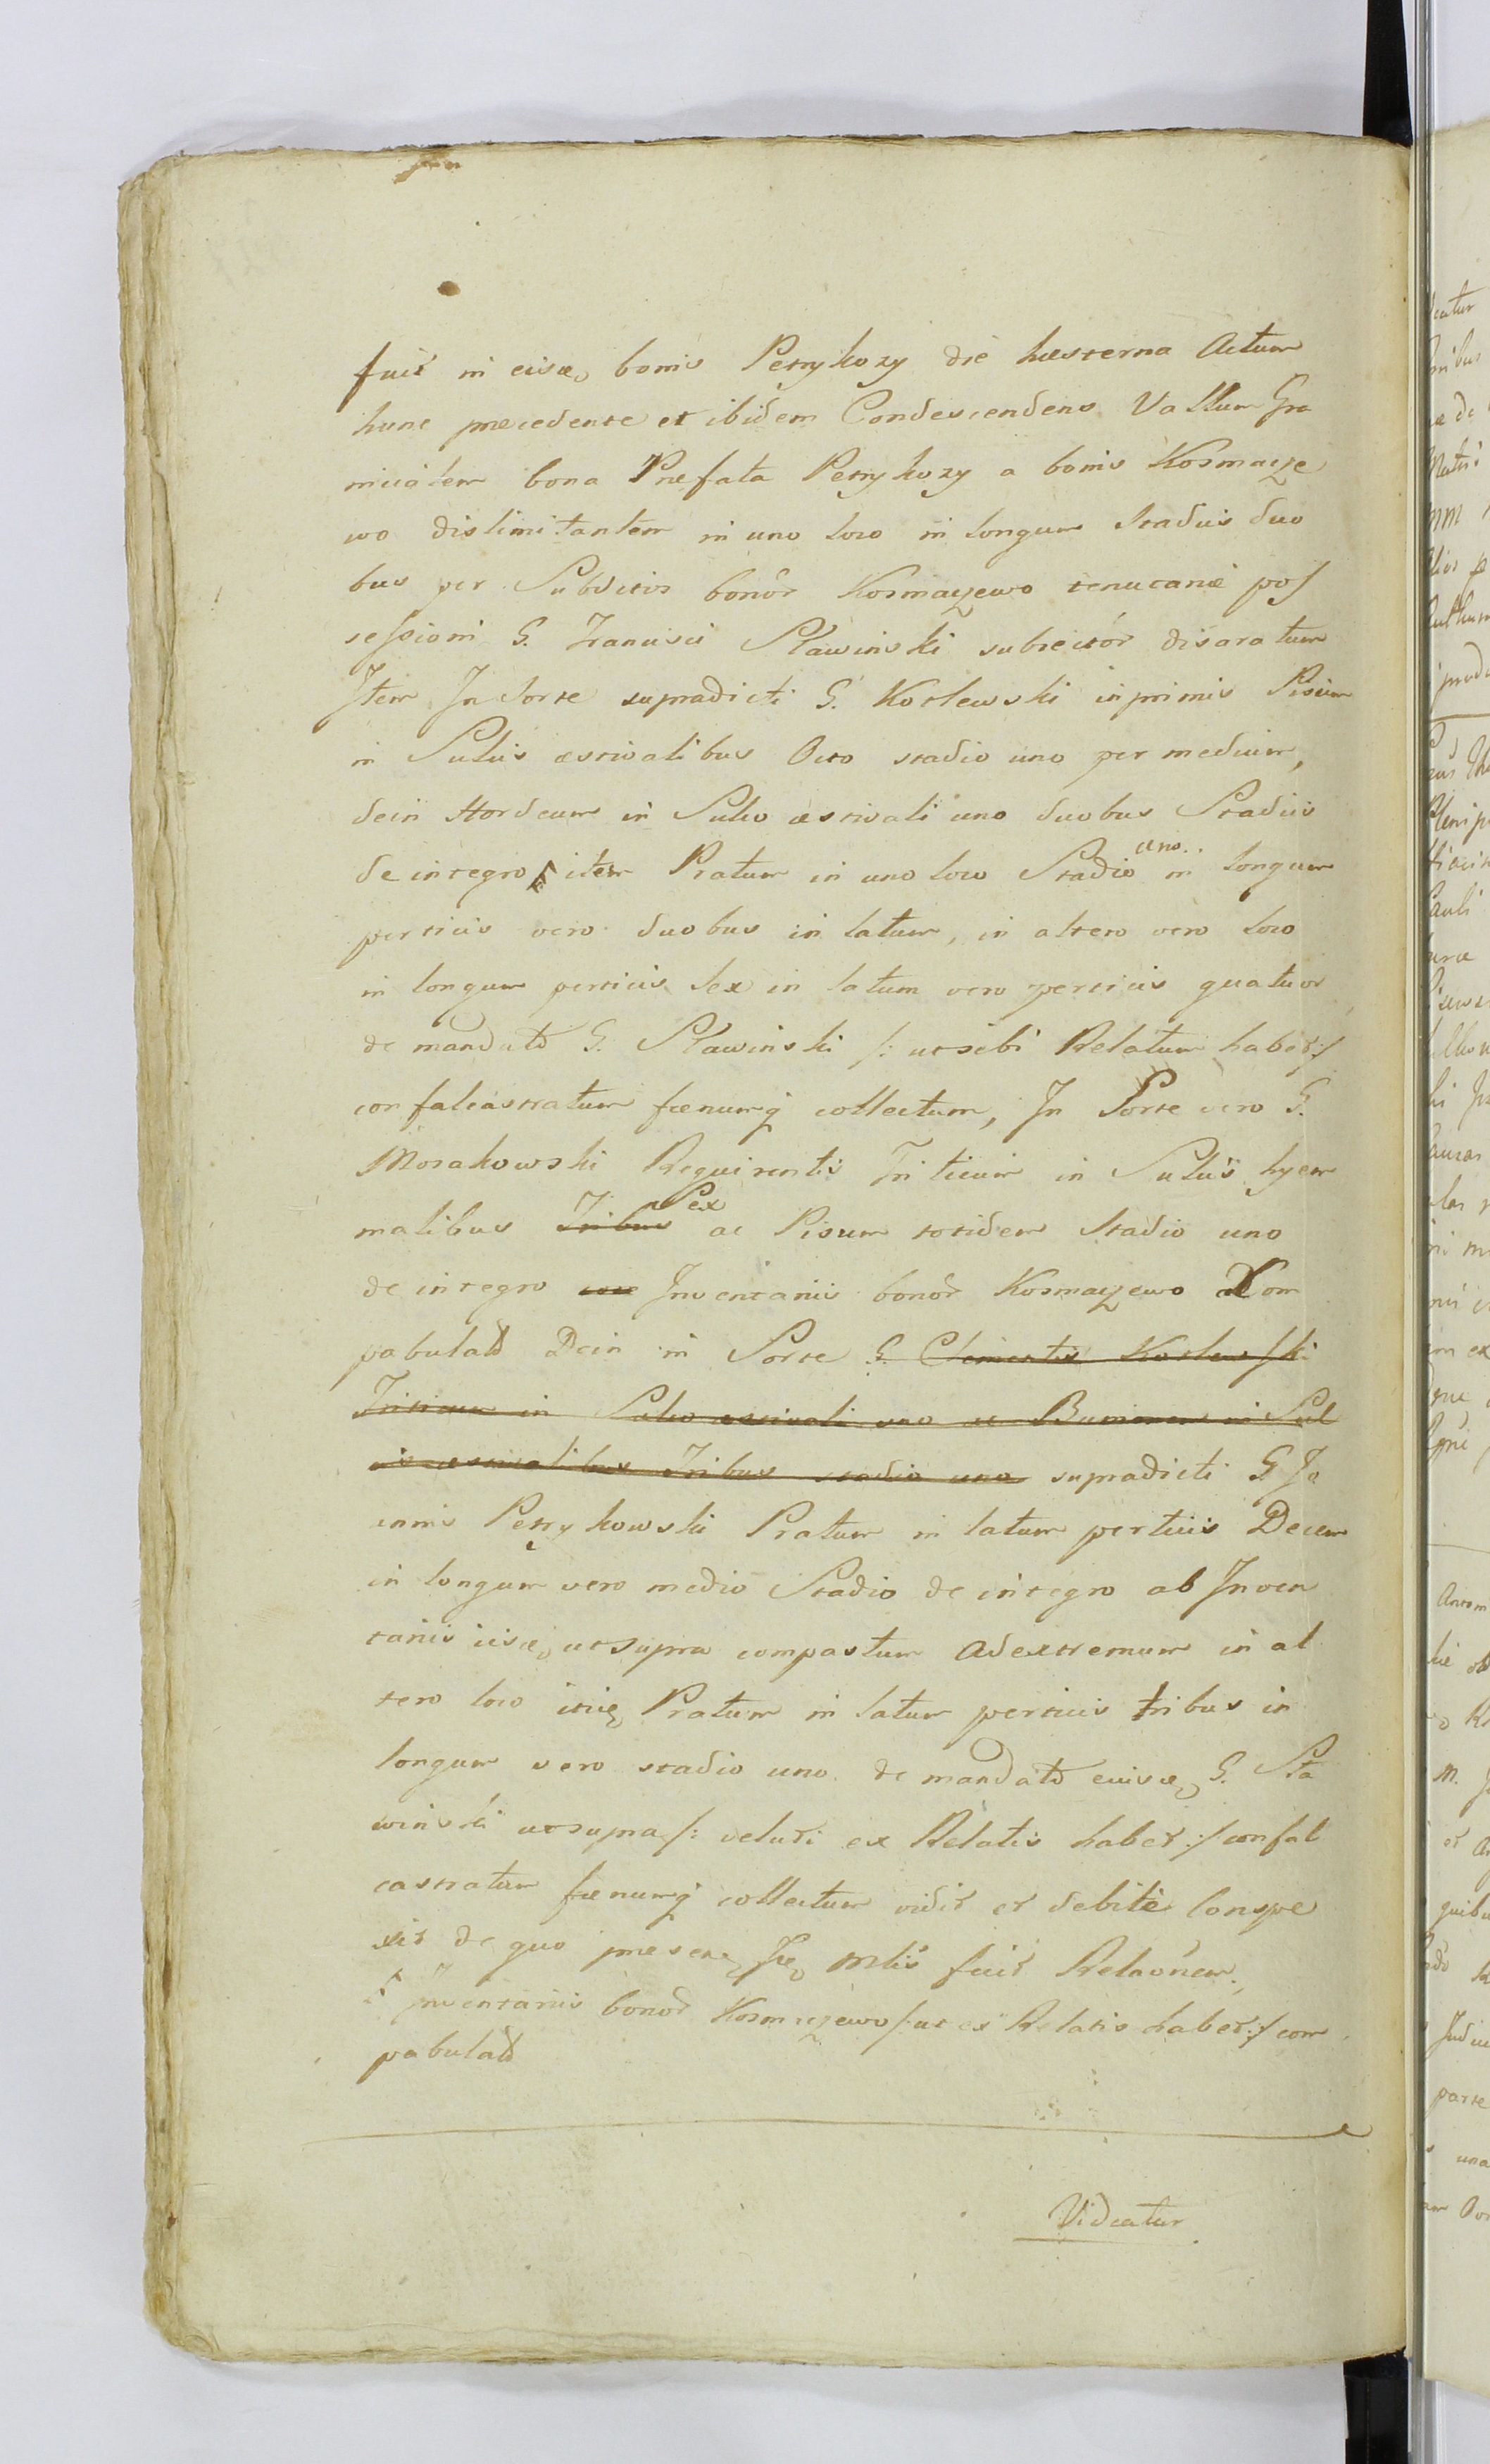 fuit in eisd. bonis Petrykozy die hesterna Actum
hunc præcedente et ibidem Condescendens Vallum Gra
nicialem bona Præfata Petrykozy a bonis Kosmacze
wo dislimitantem in uno loco in longum stadiis duo
bus per Subditos bonor Kosmaczewo tenutariæ pos
sessioni G. Francisci Sławinski subiector disaratum
Item In Sorte supradicti G. Kotlewski inprimis Pisum
in Sulcis æstivalibus Octo stadio uno per medium,
dein Hordeum in Sulco æstivali uno duobus Stadiis
de integro item Pratum in uno loco Stadio uno in longum
perticis vero duobus in latum, in altero vero loco
in longum perticis Sex in latum vero perticis quatuor
de mandato G. Sławinski /: ut sibi Relatum habet :/
confalcastratum fœnumq collectum, In Sorte vero G.
Morakowski Requirentis Triticum in Sulcis hyem
malibus Tribus Sex ac Pisum totidem Stadio uno
de integro Inventariis bonor Kosmaczewo Com
pabulatd Dein in Sorte G. Clementis Kotlewski
Triticum in Sulco æstivali uno ac in Sul
cis æstivalibus Tribus stadio uno supradicti G. Jo
annis Petrykowski Pratum in latum perticis Decem
in longum vero medio Stadio de integro ab Inven
tariis iisd. ut supra compastum Ad extremum in al
tero loco itid. Pratum in latum perticis tribus in
longum vero stadio uno de mandato eiusd. G. Sła
winski ut supra /: veluti ex Relatis habet :/ confal
castratum fœnumq collectum vidit et debite Conspe
xit de quo præsen. fuit Relaonem.
Inventariis bonor Kosmaczewo /: ut ex Relatis habet :/ com
pabulatd
Videatur